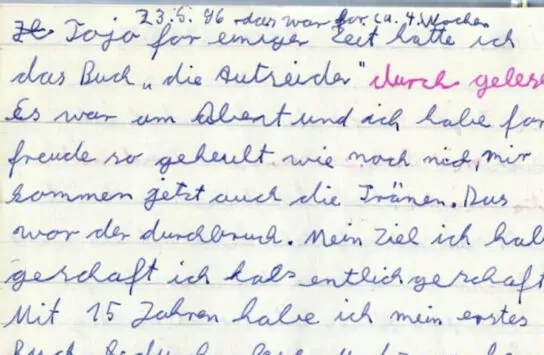 23.5.96 das war for ca. 4. Wochen
Jojo for einiger Zeit hatte ich
das Buch „die Autreider" durch gelese
Es war am Abent und ich habe for
freude so geheult wie noch nich, mir
kommen jetzt auch die Tränen. Das
wor der durchbruch. Mein Ziel ich hab
geschaft ich habs entlich geschaft
Mit 15 Jahren habe ich mein erstes
Buch